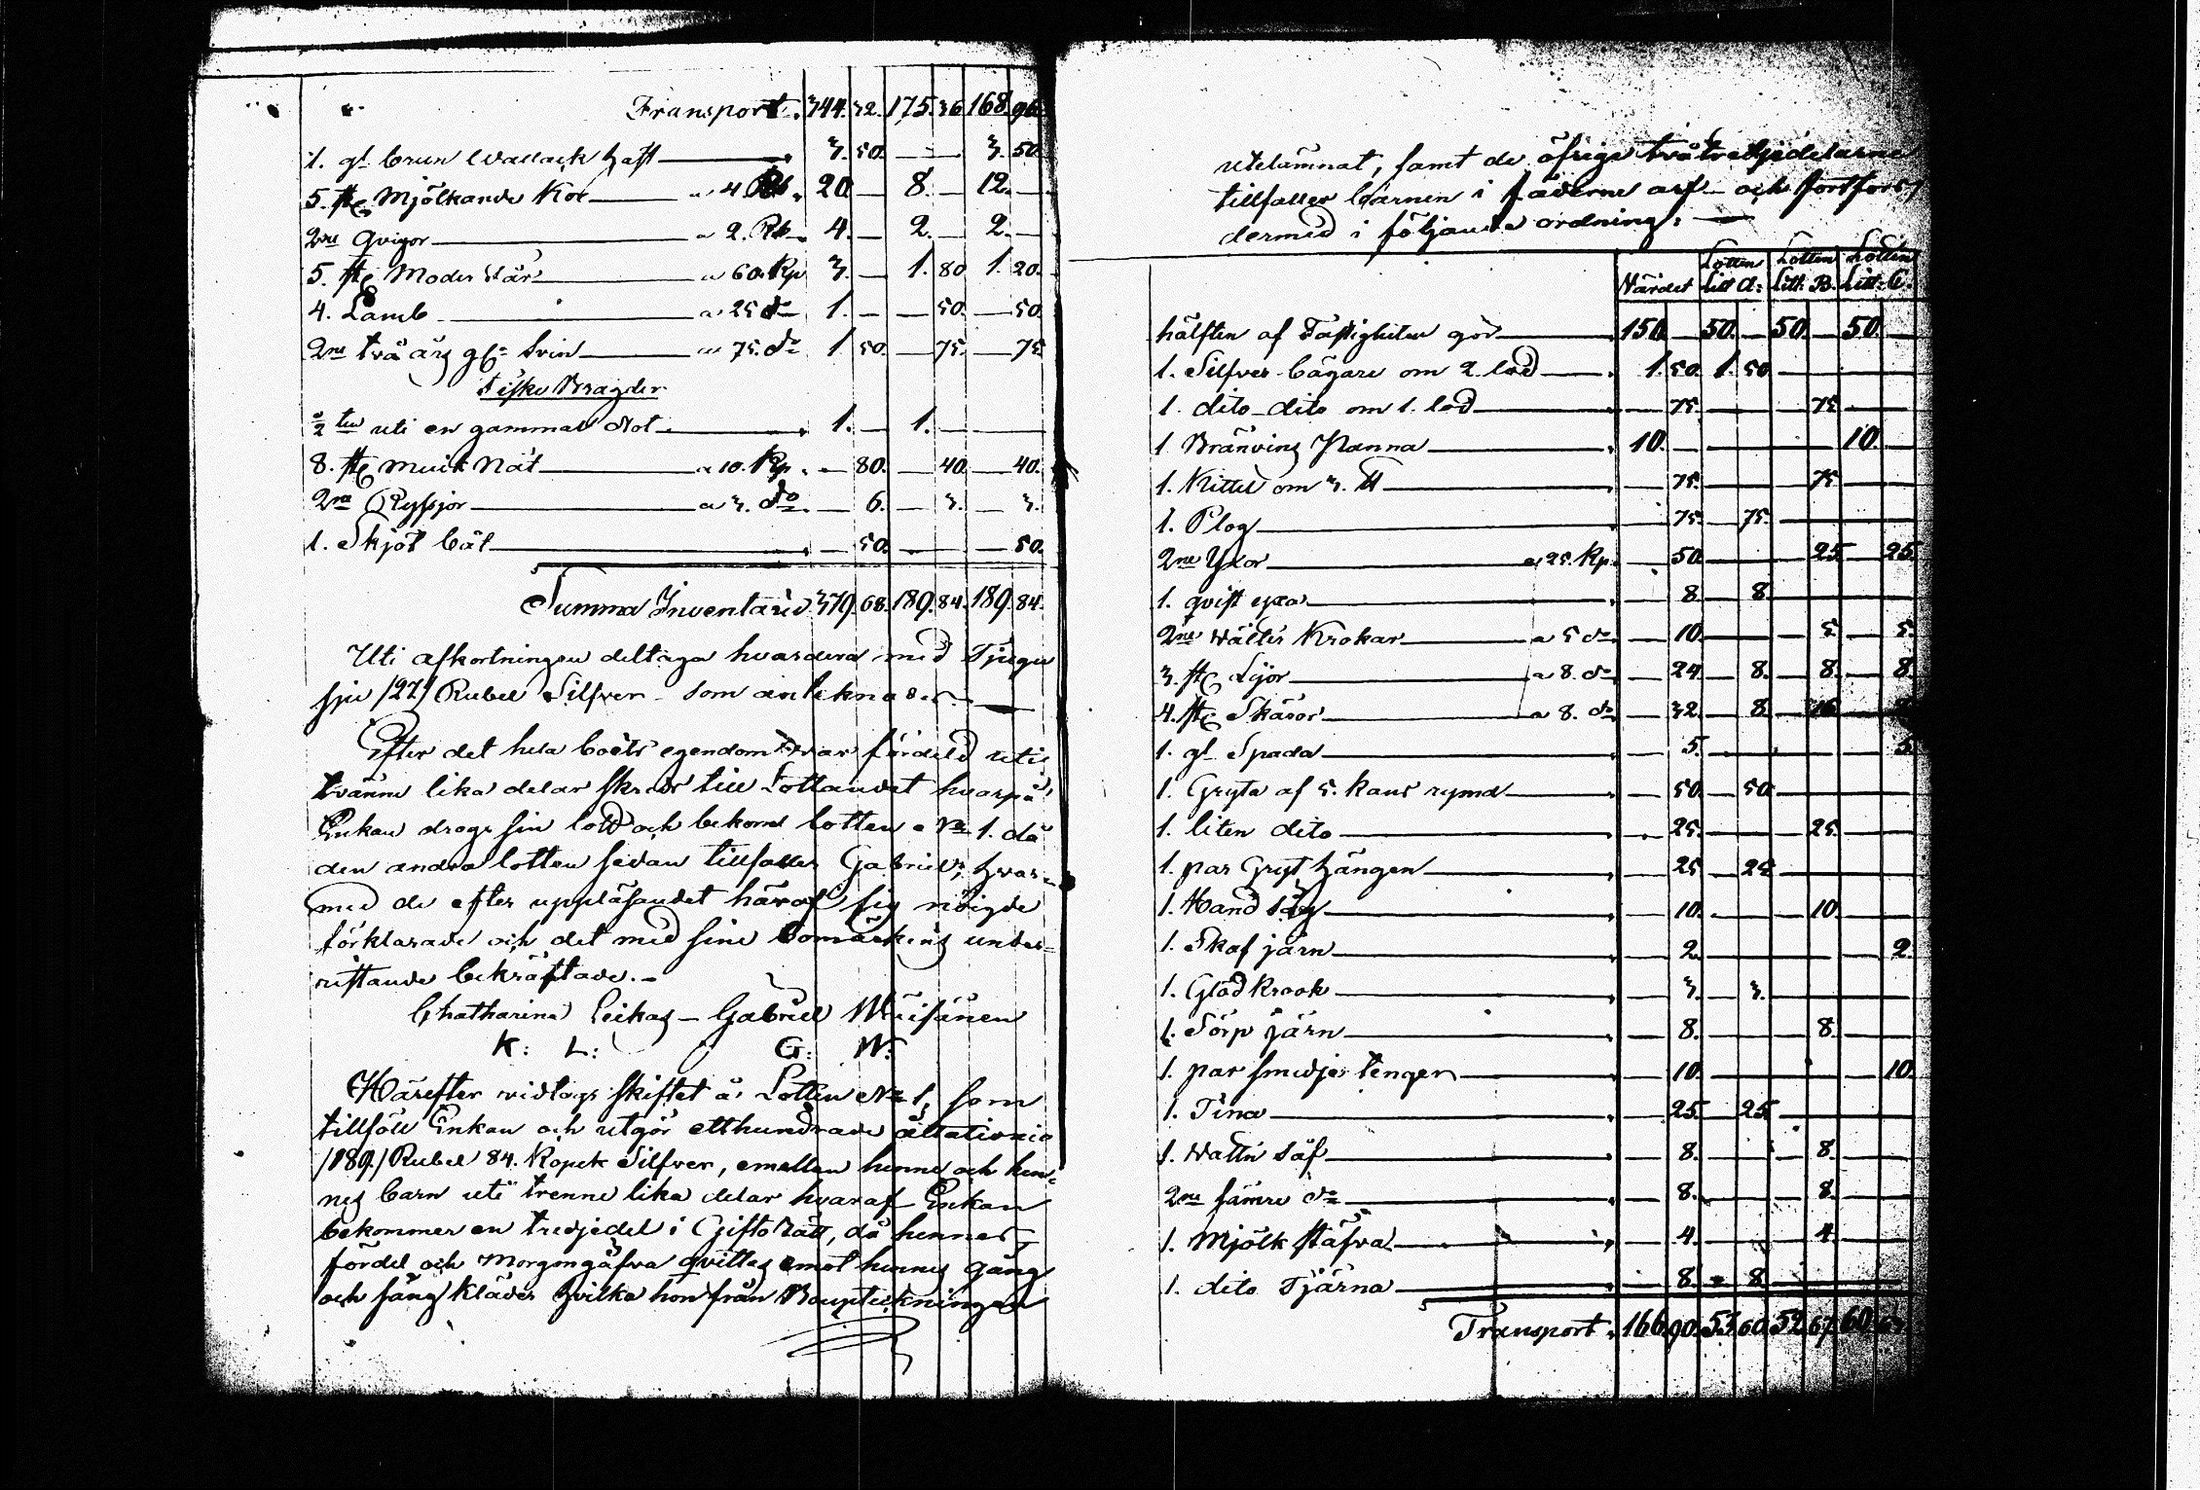 Transport. 344. 32. 175. 36 168. 96
1. gl. brun Wallack häst 3. 50. — — 3. 50
5. st. Mjölkande Kor a 4 Rb. 20 — 8. — 12. —
2ne Qvigor a 2. Rb. 4. — 2. — 2. —
5. st. Moder Får a 60. Kp 3. — 1. 80 1. 20.
4. Lamb a 25 do 1. — — 50. — 50.
2ne två års gl. Svin a 75. do 1. 50. — 75. — 75
Fiske Bragder
uti en gammal Not 1. — 1. — —
8. st. Muik Nät a 10. Kp. — 80. — 40. — 40.
2ne Ryssjor a 3. do — 6. — 3. — 3.
1. Skjöt båt — 50. — — — 50.
Summa Inventarie 379. 68. 189. 84. 189. 84.
Uti afkortningen deltaga hvardera med Tjugu
sju /27/ Rubel Silfver som anteknas.
Efter det hela boets egendom var fördeld uti
tvänne lika delar skreds till Lottandet hvarpå
Enkan drogs sin lott och bekom lotten No 1. då
den andra lotten sedan tillfaller Gabriel; hvar-
med de efter uppläsandet häraf sig nöigde
förklarade och det med sine bomärkens under-
ristande bekräftade.-
Chatharina Leikas — Gabriel Muisänen
K: L: G: M:
Härefter vidtogs skiftet å Lotten No 1, som
tillföll Enkan och utgör etthundrade åttationio
/189./ Rubel 84. Kopek Silfver, emellan henne och hen-
nes barn uti trenne lika delar hvaraf Enkan
bekommer en tredjedel i Giftorätt, då hennes
fördel och Morgongåfva qvittas emot hennes gång
och säng kläder hvilka hon från Boupteckningen
utelämnat, samt de öfrige två tredjedelarne
tillfaller Barnen i fäderne arf och fortfors
dermed i följande ordning:
Värdet Lotten Litt A: Lotten Litt: B. Lotten Litt: C.
hälften af Fastigheten gör 150. — 50. — 50. — 50. —
1. Silfver bägare om 2. lod 1. 50. 1. 50 — — — —
1. dito dito om 1. lod — 75. — — — 75 — —
1 Bränvins Panna 10. — — — — — 10. —
1. Kittel om 3. ℔ — 75. — — — 75 — —
1. Plog — 75. — 75. — — — —
2ne Yxor a 25. Kp. — 50. — — — 25 — 25.
1. qvist yxa — 8. — 8. — — — —
2ne Wälter Krokar a 5 do — 10. — — — 5 — 5.
3. st. Lijor a 8. do — 24. — 8. — 8. — 8
4. st. Skäror a 8. do — 32. — 8. — 16.
1. gl. Spada — 5. — — — — — 5
1. Gryta af 5. kans rymd — 50. — 50. — — — —
1. liten dito — 25. — — — 25. — —
1. par Gryt hängen — 25 — 25. — — — —
1. Hand såg — 10. — — — 10. — —
1. Skaf järn — 2. — — — — — 2.
1. Glödkrook — 3. — 3. — — — —
1. Sörp järn — 8. — — — 8. — —
1. par smedjes tänger — 10. — — — — — 10.
1. Tina — 25. — 25. — — — —
1. Wattn såf — 8. — — — 8. — —
2ne sämre do — 8. — — — 8. — —
1. Mjölk stäfva — 4. — — — 4. — —
1. dito Tjärna — 8. — 8 — — — —
Transport. 166. 90. 53. 60. 52. 67. 60.